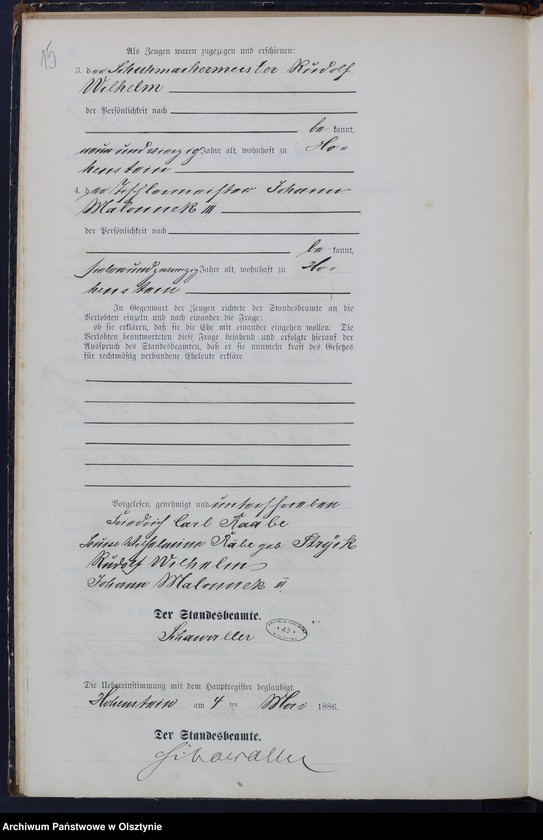 15
Als Zeugen waren zugezogen und erschienen:
3. der Schuhmachermeister Rudolf
Wilhelm
der Persönlichkeit nach
be kannt,
neunundvierzig Jahre alt, wohnhaft zu Ho-
henstein
4. der Tischlermeister Johann
Malonnek III
der Persönlichkeit nach
be kannt,
siebenundzwanzig Jahre alt, wohnhaft zu Ho-
henstein
In Gegenwart der Zeugen richtete der Standesbeamte an die
Verlobten einzeln und nach einander die Frage:
ob sie erklären, daß sie die Ehe mit einander eingehen wollen. Die
Verlobten beantworteten diese Frage bejahend und erfolgte hierauf der
Ausspruch des Standesbeamten, daß er sie nunmehr kraft des Gesetzes
für rechtmäßig verbundene Eheleute erkläre.
Vorgelesen, genehmigt und unterschrieben
Friedrich Carl Raabe
Wilhelmine Rabe geb Stryik
Rudolf Wilhelm
Johann Malonnek III
Der Standesbeamte.
Schawaller
42
Die Uebereinstimmung mit dem Hauptregister beglaubigt.
Hohenstein am 4 ten Mai 1886.
Der Standesbeamte.
Schawaller
Archiwum Państwowe w Olsztynie